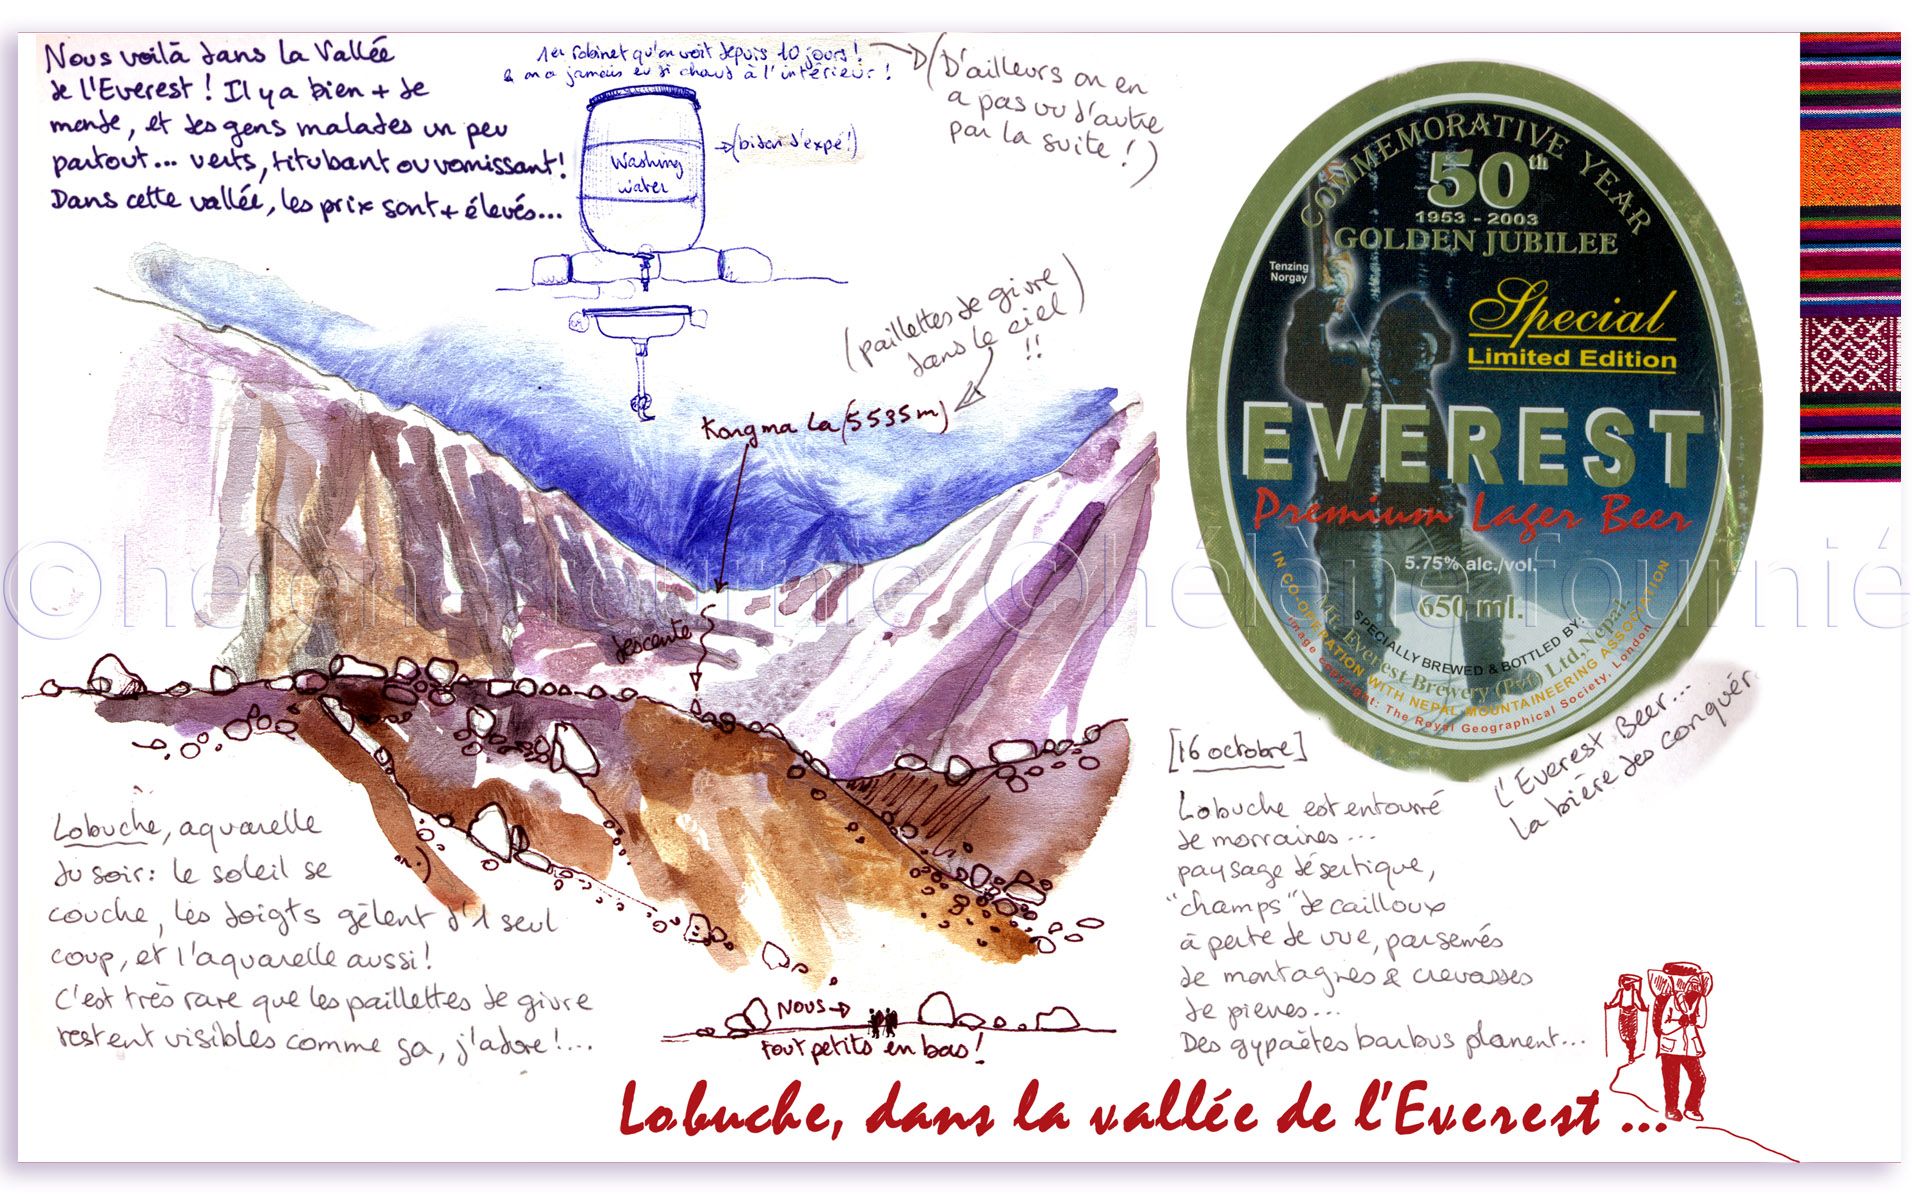 Nous voilà dans la Vallée
de l'Everest ! Il y a bien + de
monde, et des gens malades un peu
partout... verts, titubant ou vomissant!
Dans cette vallée, les prix sont + élevés...
1er robinet qu'on voit depuis 10 jours !
& on a jamais eu si chaud à l'intérieur !
(D'ailleurs on en
a pas vu d'autre
par la suite !)
Washing
water
(bidon d'expé!)
(paillettes de givre
dans le ciel)
!!
Kongma La (5535m)
descente
COMMEMORATIVE YEAR
50th
1953 - 2003
GOLDEN JUBILEE
Tenzing
Norgay
Special
Limited Edition
EVEREST
Premium Lager Beer
5.75% alc./vol.
650 ml.
SPECIALLY BREWED & BOTTLED BY:
Mt. Everest Brewery (Pvt) Ltd, Nepal.
IN CO-OPERATION WITH NEPAL MOUNTAINEERING ASSOCIATION
Image copyright: The Royal Geographical Society, London
L'Everest Beer...
la bière des conquér.
©hélène fournié ©hélène fournié
Lobuche, aquarelle
du soir: le soleil se
couche, les doigts gèlent d'1 seul
coup, et l'aquarelle aussi!
C'est très rare que les paillettes de givre
restent visibles comme ça, j'adore!...
NOUS
tout petits en bas!
[16 octobre]
Lobuche est entourré
de morraines...
paysage désertique,
"champs" de cailloux
à perte de vue, parsemés
de montagnes & crevasses
de pierres...
Des gypaètes barbus planent...
Lobuche, dans la vallée de l'Everest ...